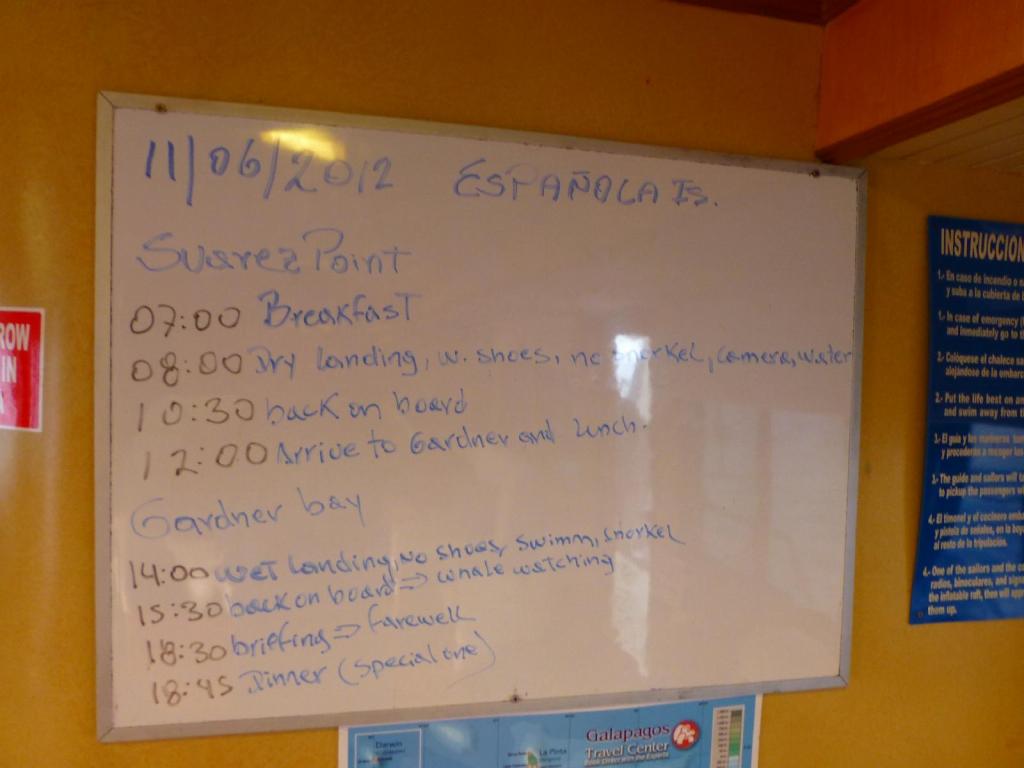 11/06/2012 ESPAÑOLA Is.
Suarez Point
07:00 Breakfast
08:00 Dry landing, w. shoes, no snorkel, camera, water
10:30 back on board
12:00 Arrive to Gardner and lunch.
Gardner bay
14:00 WET landing, No shoes, swimm, snorkel
15:30 back on board => whale watching
18:30 briefing => farewell
18:45 Dinner (special one)
ROW
IN
INSTRUCCION
1.- En caso de incendio o
y suba a la cubierta de
1.- In case of emergency
and immediately go to
2.- Colóquese el chaleco sa
alejándose de la embarc
2.- Put the life best on an
and swim away from
3.- El guía y los marineros
y procederán a recoger los
3.- The guide and sailors will
to pickup the passengers
4.- El timonel y el cocinero emba
y pistola de señales, en la
al resto de la tripulación.
4.- One of the sailors and the co
radios, binoculares, and sign
the inflatable raft, then will app
them up.
Galapagos
Travel Center
Darwin
La Pinta